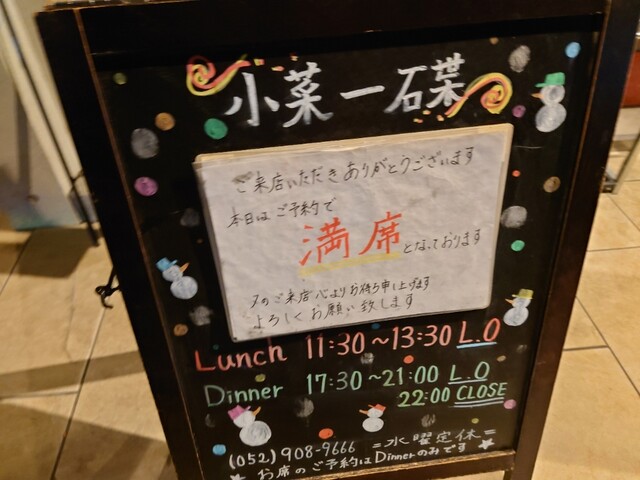 小菜一石葉
ご来店いただきありがとうございます
本日はご予約で
満席となっております
又のご来店心よりお待ち申し上げます
よろしくお願い致します
Lunch 11:30~13:30 L.O
Dinner 17:30~21:00 L.O
22:00 CLOSE
(052)908-9666 =水曜定休=
お席のご予約はDinnerのみです